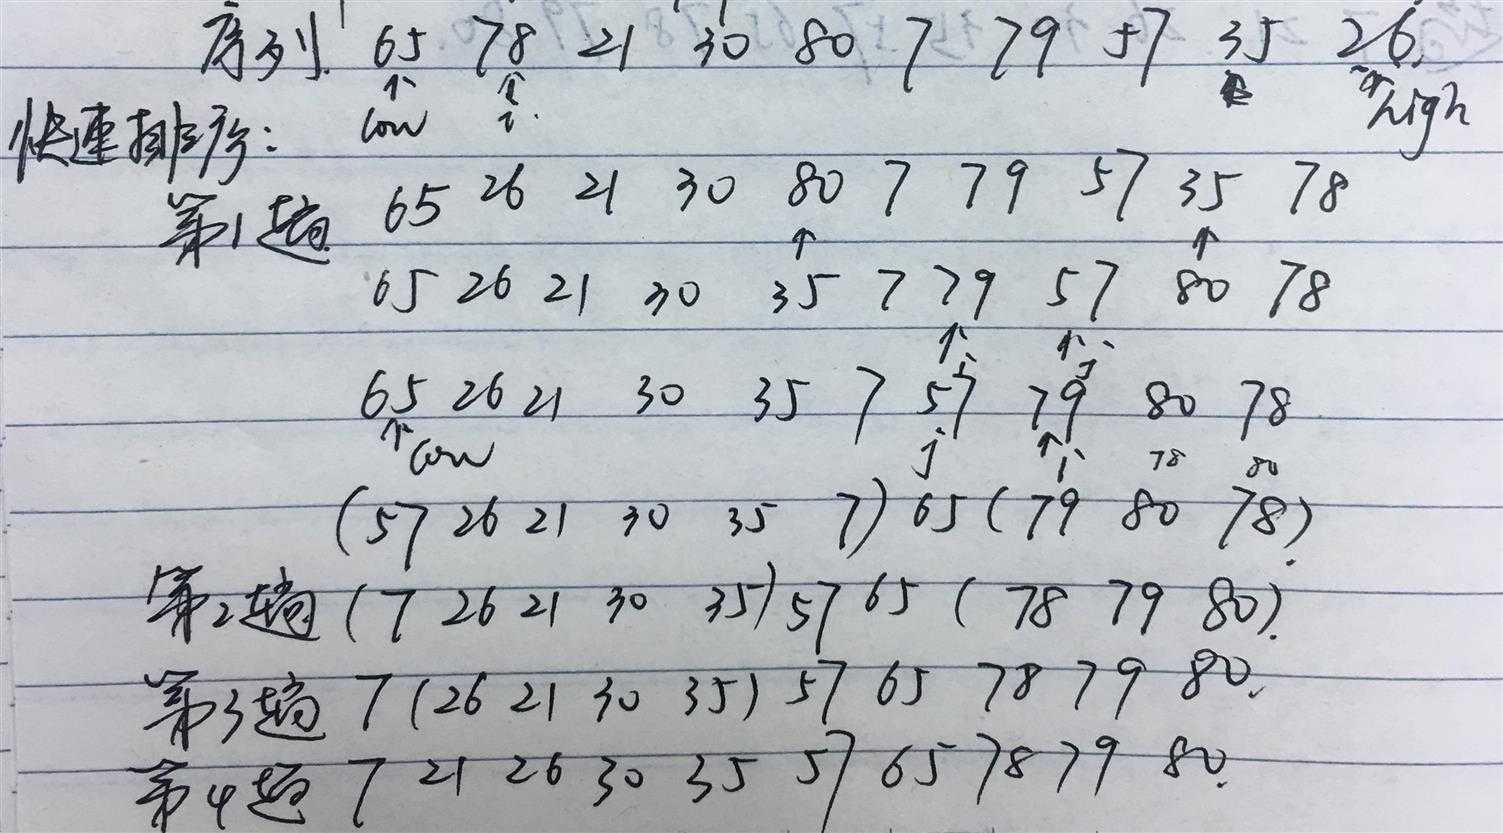 序列 65 78 21 30 80 7 79 57 35 26
↑ ↑ ↑
low i high
快速排序:
第1趟 65 26 21 30 80 7 79 57 35 78
↑ ↑
65 26 21 30 35 7 79 57 80 78
↑i ↑j
65 26 21 30 35 7 57 79 80 78
↑low j ↑i 78 80
(57 26 21 30 35 7) 65 (79 80 78).
第2趟 (7 26 21 30 35) 57 65 (78 79 80).
第3趟 7 (26 21 30 35) 57 65 78 79 80.
第4趟 7 21 26 30 35 57 65 78 79 80.